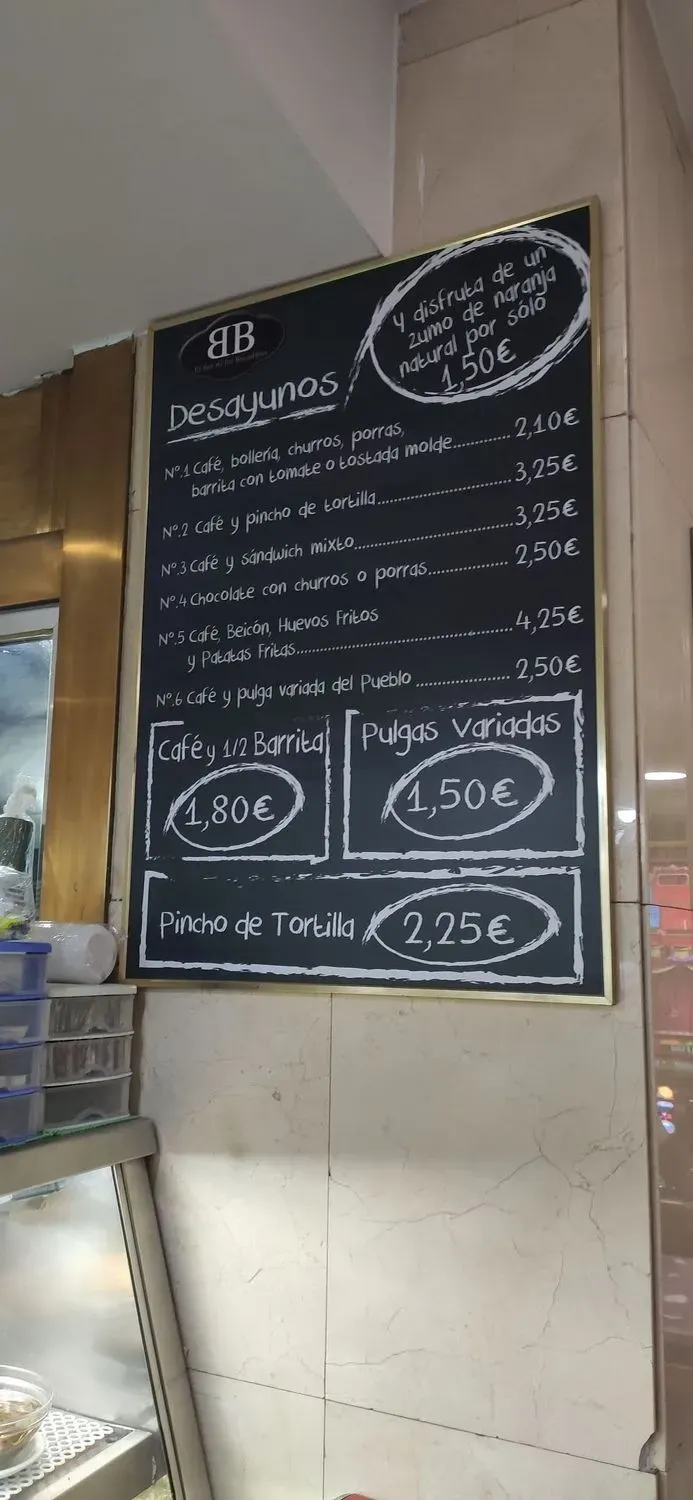 BB
Y disfruta de un
zumo de naranja
natural por sólo
1,50€
Desayunos
Nº.1 Café, bollería, churros, porras,
barrita con tomate o tostada molde............ 2,10€
Nº.2 Café y pincho de tortilla............................ 3,25€
Nº.3 Café y sándwich mixto................................3,25€
Nº.4 Chocolate con churros o porras................ 2,50€
Nº.5 Café, Beicón, Huevos Fritos
y Patatas Fritas............................................4,25€
Nº.6 Café y pulga variada del Pueblo .................. 2,50€
Café y 1/2 Barrita
1,80€
Pulgas Variadas
1,50€
Pincho de Tortilla
2,25€